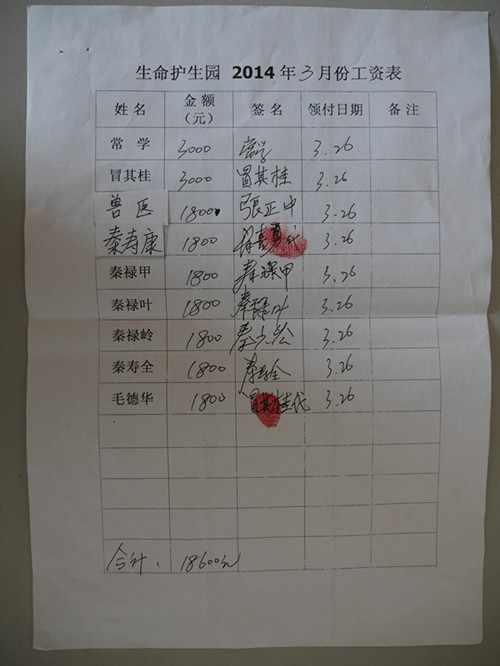 生命护生园 2014年3月份工资表
姓名 金额（元） 签名 领付日期 备注
常学 3000 常学 3.26
冒其桂 3000 冒其桂 3.26
兽医 1800 張正中 3.26
秦寿康 1800 代 3.26
秦禄甲 1800 秦禄甲 3.26
秦禄叶 1800 秦禄叶 3.26
秦禄岭 1800 3.26
秦寿全 1800 秦寿全 3.26
毛德华 1800 冒其桂代 3.26
合计： 18600元